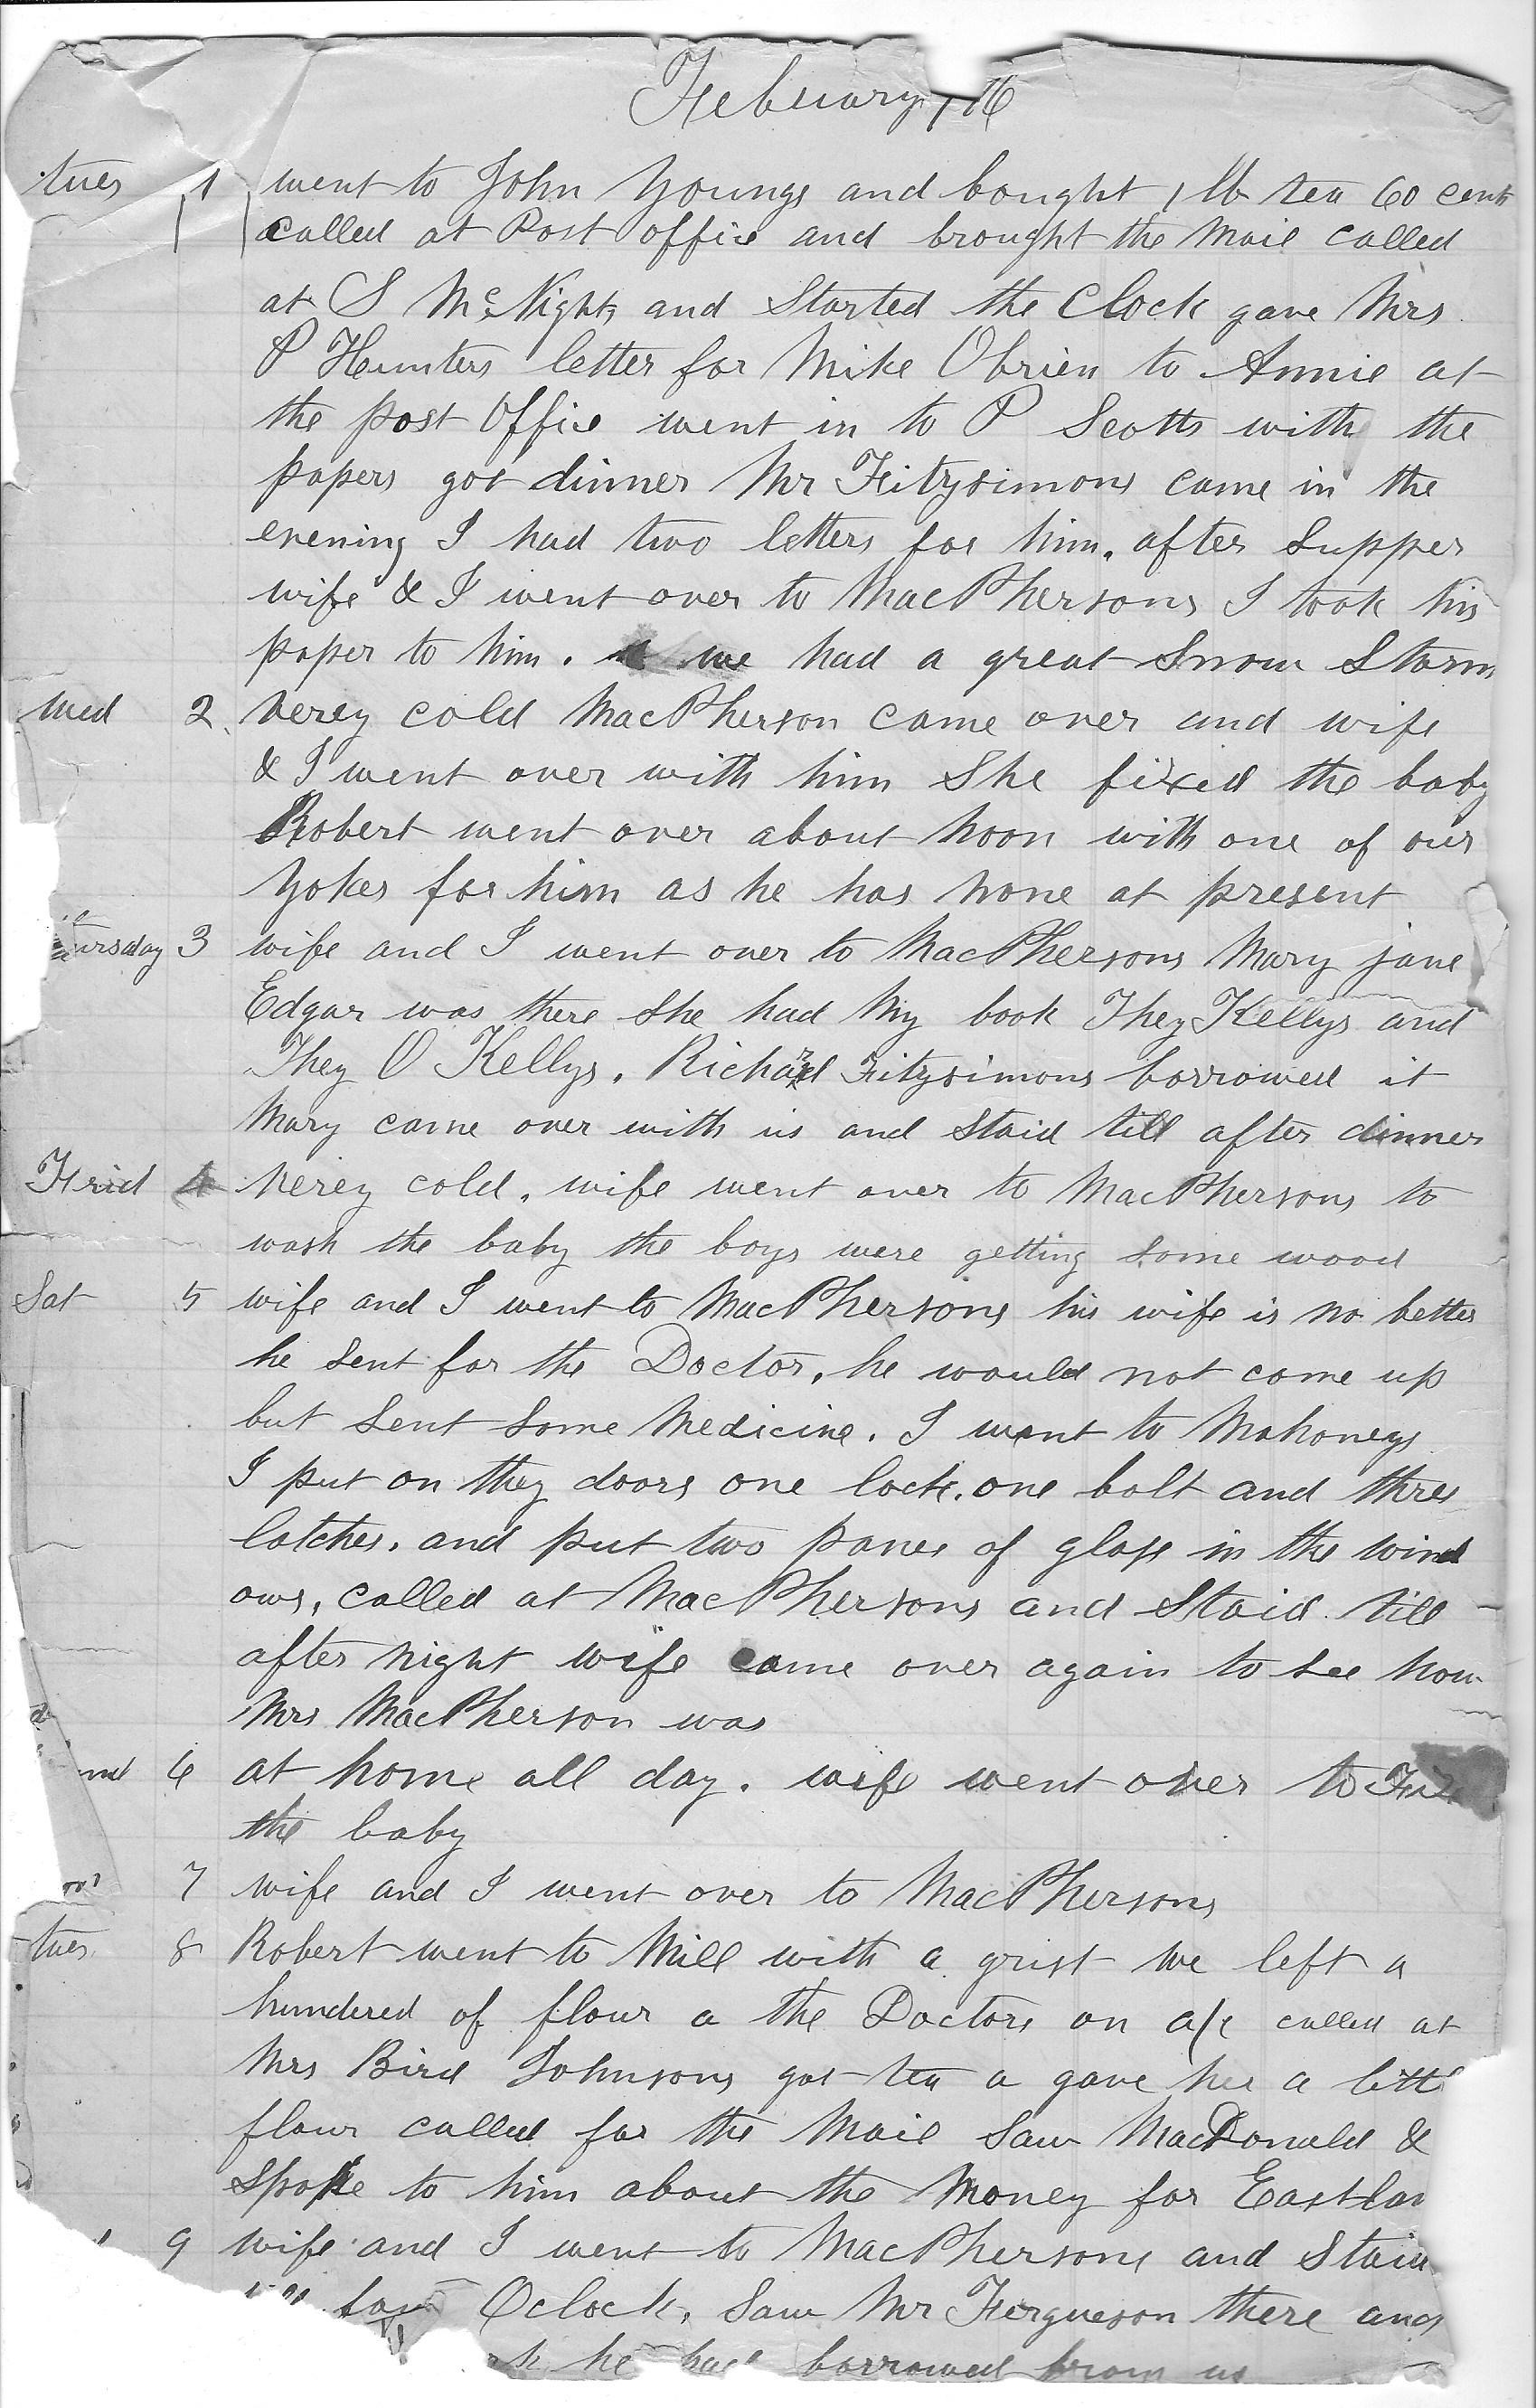 February /76
tues 1 went to John Youngs and bought 1 lb tea 60 cents
called at Post office and brought the Mail called
at S McNights and Started the Clock gave Mrs
P Hunters letter for Mike Obrien to Annie at
the post Office went in to P Scotts with the
papers got dinner Mr Fitzsimons came in the
evening I had two letters for him. after Supper
wife & I went over to MacPhersons I took his
paper to him. we had a great Snow Storm
Wed 2 Verey cold MacPherson came over and wife
& I went over with him She fixed the baby
Robert went over about Noon with one of our
Yokes for him as he has None at present
ursday 3 wife and I went over to MacPhersons Mary jane
Edgar was there She had My book They Kellys and
They O Kellys. Richard Fitzsimons borrowed it
Mary came over with us and Staid till after dinner
Frid 4 Verey cold. wife went over to MacPhersons to
wash the baby the boys were getting Some wood
Sat 5 wife and I went to MacPhersons his wife is no better
he Sent for the Doctor. he would not come up
but Sent Some Medicine. I went to Mahoneys
I put on they doors one lock. one bolt and three
latches. and put two panes of glass in the wind
ows. called at MacPhersons and Staid till
after Night wife came over again to See how
Mrs MacPherson was
6 at home all day. wife went over to
the baby
7 wife and I went over to MacPhersons
tues 8 Robert went to Mill with a grist We left a
hundered of flour a the Doctors on a/c called at
Mrs Bird Johnsons got tea a gave her a littl
flour called for the Mail Saw MacDonald &
Spoke to him about the Money for Eastlan
9 wife and I went to MacPhersons and Staid
four Oclock. Saw Mr Fergueson there and
he had borrowed from us